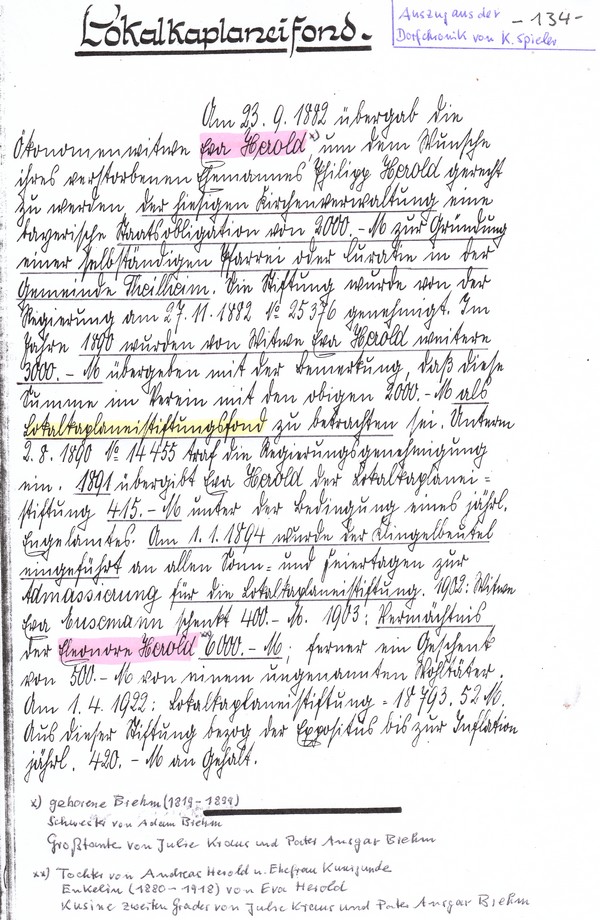 Lokalkaplaneifond.
Auszug aus der - 134 -
Dorfchronik von K. Spieler
Am 23. 9. 1882 übergab die
Ökonomenwitwe Eva Herold x), um dem Wunsche
ihres verstorbenen Ehemannes Philipp Herold gerecht
zu werden, der hiesigen Kirchenverwaltung eine
bayerische Staatsobligation von 2000.- M zur Gründung
einer selbständigen Pfarrei oder Curatie in der
Gemeinde Theilheim. Die Stiftung wurde von der
Regierung am 27. 11. 1882 No 25376 genehmigt. Im
Jahre 1890 wurden von Witwe Eva Herold weitere
3000.- M übergeben mit der Bemerkung, daß diese
Summe im Verein mit den obigen 2000.- M als
Lokalkaplaneistiftungsfond zu betrachten sei. Unterm
2. 8. 1890 No 14455 traf die Regierungsgenehmigung
ein. 1891 übergibt Eva Herold der Lokalkaplanei=
stiftung 415.- M unter der Bedingung eines jährl.
Engelamtes. Am 1. 1. 1894 wurde der Klingelbeutel
eingeführt an allen Sonn= und Feiertagen zur
Admassierung für die Lokalkaplaneistiftung. 1902: Witwe
Eva Eusemann schenkt 400.- M. 1903: Vermächtnis
der Eleonore Herold xx) 6000.- M; ferner ein Geschenk
von 500.- M von einem ungenannten Wohltäter.
Am 1. 4. 1922: Lokalkaplaneistiftung = 18793. 52 M.
Aus dieser Stiftung bezog der Expositus bis zur Inflation
jährl. 420.- M an Gehalt.
x) geborene Brehm (1819-1899)
Schwester von Adam Brehm
Großtante von Julie Kraus und Pater Ansgar Brehm
xx) Tochter von Andreas Herold u. Ehefrau Kunigunde
Enkelin (1880-1918) von Eva Herold
Kusine zweiten Grades von Julie Kraus und Pater Ansgar Brehm